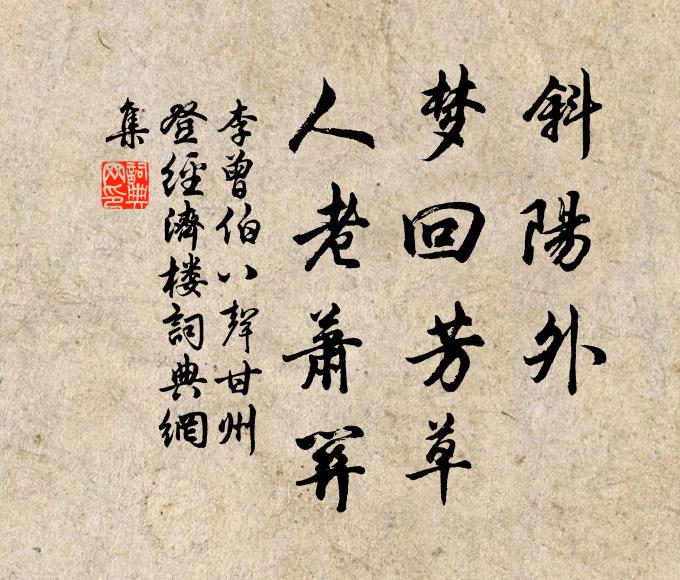 斜陽外
梦回芳草
人老蕭關
李曾伯八聲甘州
登經濟楼詞典網
集
詞典
网印